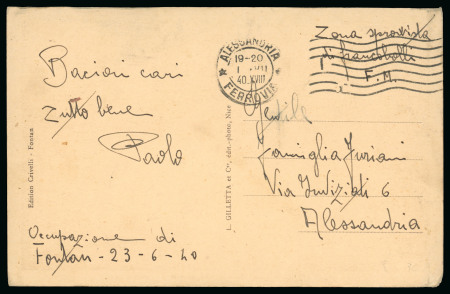 Bacioni cari
tutto bene
Paolo
Occupazione di
Fontan - 23-6-40
Edition Caivelli - Fontan
L. GILLETTA et Cie, édit.-phot., Nice
ALESSANDRIA
19-20
40.XVIII
FERROVIE
Zona sprovvista
di francobolli
F.M.
Gentile
Famiglia Furiani
Via
6
Alessandria